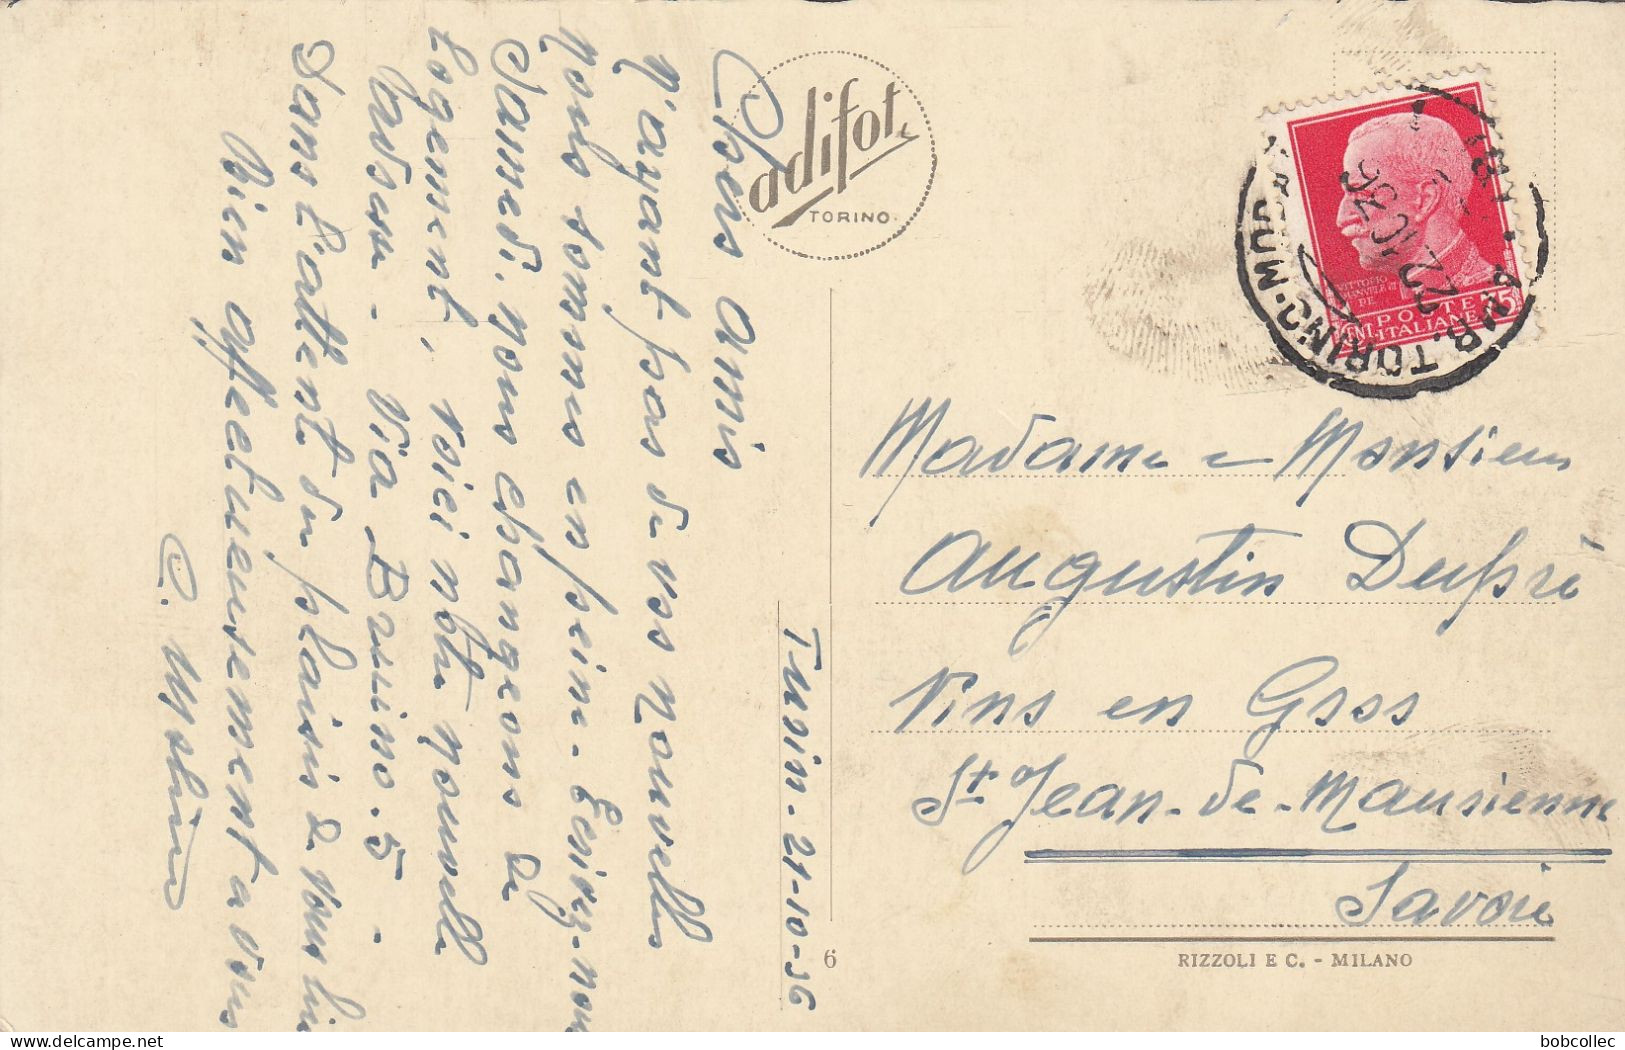 Turin - 21-10-36
Chers amis
N'ayant pas de vos nouvelles
nous sommes en peine - Ecrivez-nous
Samedi, nous changeons de
Logement, voici notre nouvelle
Adresse - Via Bruino. 5 -
Dans l'attente du plaisir de vous lire
Bien affectueusement a vous
adifot
TORINO
VITTORIO
EMANVELE III
RE
POSTE
ITALIANE
CMI
75
TORINO
22 10 36
Madame e Monsieur
Augustin Dupré
Vins en Gros
St Jean-de-Maurienne
Savoie
6
RIZZOLI E C. - MILANO
bobcollec